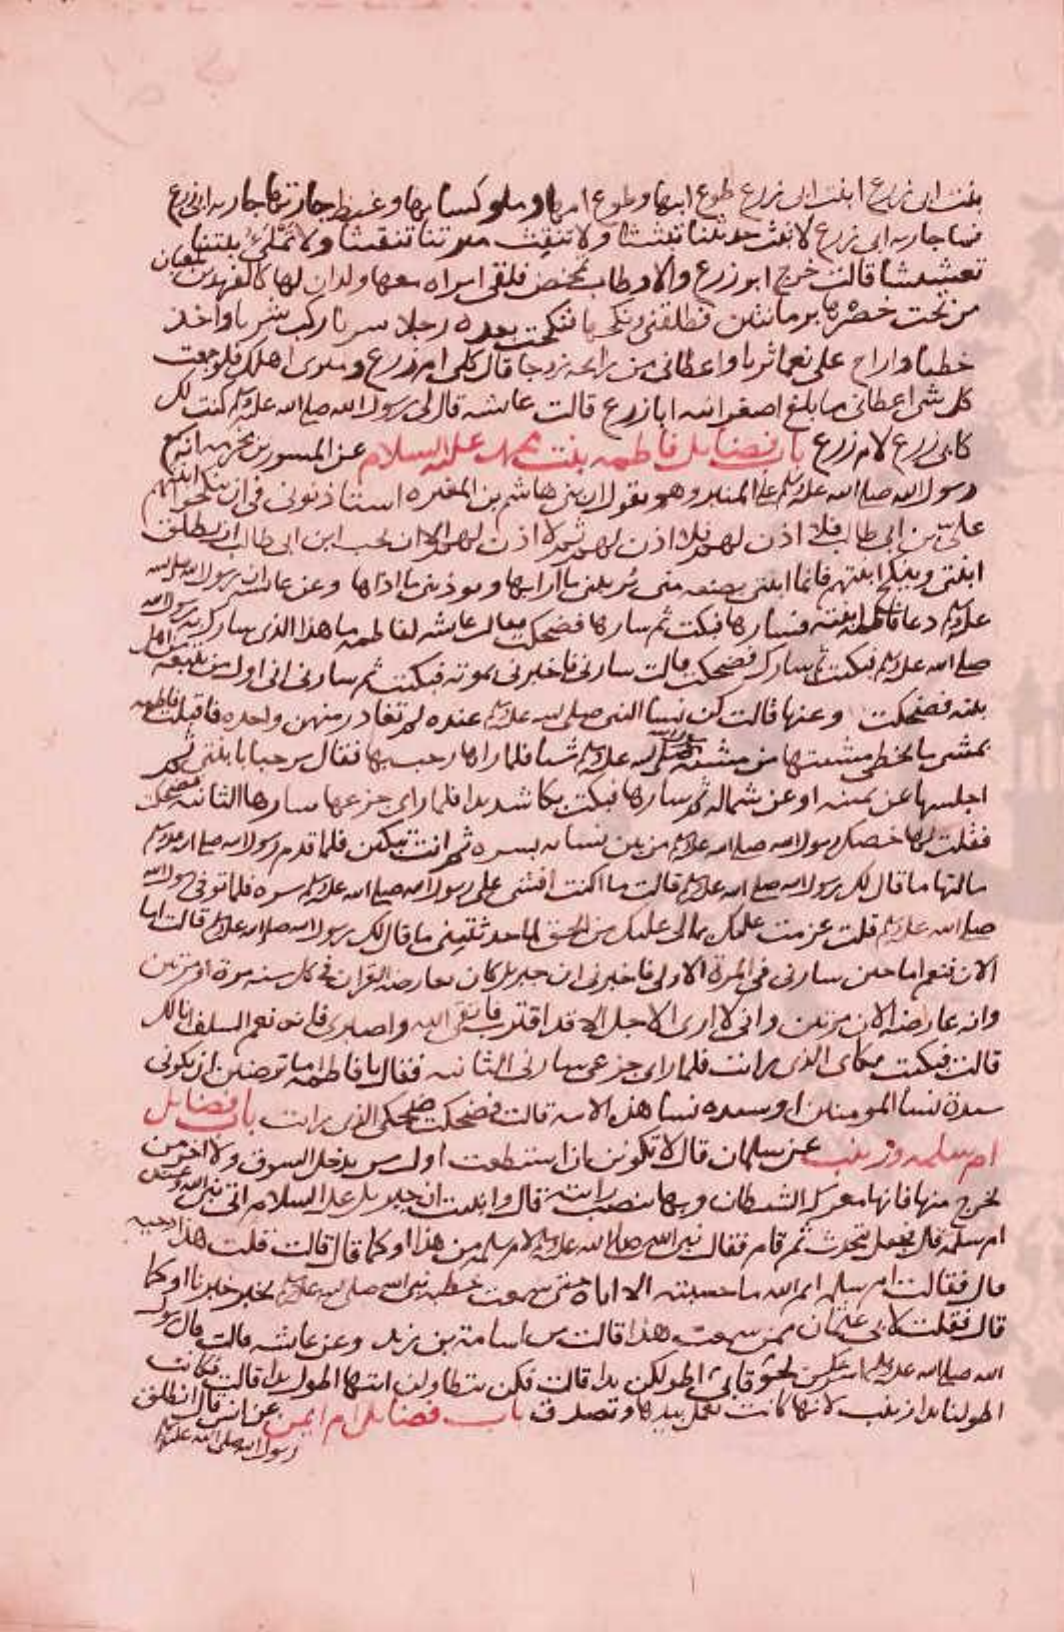 بنت ابى زرع ابنت ابى زرع طوع ابيها وطوع امها وملو كسايها وغيظ جارتها جاريه ابى زرع
فما جاريه ابى زرع لا تبث حديثنا تبثيثا ولا تنقث ميرتنا تنقيثا ولا تملئ بيتنا
تعشيشا قالت خرج ابو زرع والاوطاب تمخض فلقى امراه معها ولدان لها كالفهدين يلعبان
من تحت خصرها برمانتين فطلقنى ونكحها فنكحت بعده رجلا سريا ركب شريا واخذ
خطيا واراح على نعما ثريا واعطانى من كل رايحه زوجا قال كلى ام زرع وميرى اهلك فلو جمعت
كل شى اعطانى ما بلغ اصغر انيه ابى زرع قالت عايشه قال لى رسول الله صلى الله عليه وسلم كنت لك
كابى زرع لام زرع باب فضايل فاطمه بنت محمد عليه السلام عن المسور بن مخرمه انه سمع
رسول الله صلى الله عليه وسلم على المنبر وهو يقول ان بنى هاشم بن المغيره استاذنونى فى ان ينكحوا ابنتهم
على بن ابى طالب فلا اذن لهم ثم لا اذن لهم ثم لا اذن لهم الا ان يحب ابن ابى طالب ان يطلق
ابنتى وينكح ابنتهم فانما ابنتى بضعه منى يريبنى ما ارابها ويوذينى ما اذاها وعن عايشه ان رسول الله صلى الله
عليه وسلم دعا فاطمه ابنته فسارها فبكت ثم سارها فضحكت فقالت عايشه لفاطمه ما هذا الذى سارك به رسول الله
صلى الله عليه وسلم فبكيت ثم سارك فضحكت قالت سارنى فاخبرنى بموته فبكيت ثم سارنى انى اول من يتبعه من اهل
بيته فضحكت وعنها قالت كن نسا النبى صلى الله عليه وسلم عنده لم تغادر منهن واحده فاقبلت فاطمه
تمشى ما تخطى مشيتها من مشيه رسول الله صلى الله عليه وسلم شيا فلما راها رحب بها فقال مرحبا يا بنتى ثم
اجلسها عن يمينه او عن شماله ثم سارها فبكت بكا شديدا فلما راى جزعها سارها الثانيه فضحكت
فقلت لها خصك رسول الله صلى الله عليه وسلم من بين نسايه بسره ثم انت تبكين فلما قدم رسول الله صلى الله عليه وسلم
سالتها ما قال لك رسول الله صلى الله عليه وسلم قالت ما كنت افشى على رسول الله صلى الله عليه وسلم سره فلما توفى رسول الله
صلى الله عليه وسلم قلت عزمت عليك بمالى عليك من الحق لما حدثتينى ما قال لك رسول الله صلى الله عليه وسلم قالت اما
الان فنعم اما حين سارنى فى المرة الاولى فاخبرنى ان جبريل كان يعارضه القران فى كل سنه مرة او مرتين
وانه عارضه الان مرتين وانى لا ارى الاجل الا قد اقترب فاتقى الله واصبرى فانه نعم السلف انا لك
قالت فبكيت بكاى الذى رايت فلما راى جزعى سارنى الثانيه فقال يا فاطمه اما ترضين ان تكونى
سيدة نسا المومنين او سيده نسا هذه الامه قالت فضحكت ضحكى الذى رايت باب فضايل
ام سلمه وزينب عن سلمان قال لا تكونن ان استطعت اول من يدخل السوق ولا اخر من
يخرج منها فانها معركه الشيطان وبها ينصب رايته قال وانبيت ان جبريل عليه السلام اتى نبى الله وعنده
ام سلمه قال فجعل يتحدث ثم قام فقال نبى الله صلى الله عليه وسلم لام سلمه من هذا او كما قال قالت قلت هذا دحيه
قال فقالت ام سلمه ايم الله ما حسبته الا اياه حتى سمعت خطبه نبى الله صلى الله عليه وسلم يخبر خبرنا او كما
قال فقلت لابى عثمان ممن سمعت هذا قالت من اسامة بن زيد وعن عايشه قالت قال رسول
الله صلى الله عليه وسلم اسرعكن لحوقا بى اطولكن يدا قالت فكن يتطاولن ايتها اطول يدا قالت فكانت
اطولنا يدا زينب لانها كانت تعمل بيدها وتصدق باب فضايل ام ايمن عن انس قال انطلق
رسول الله صلى الله عليه وسلم